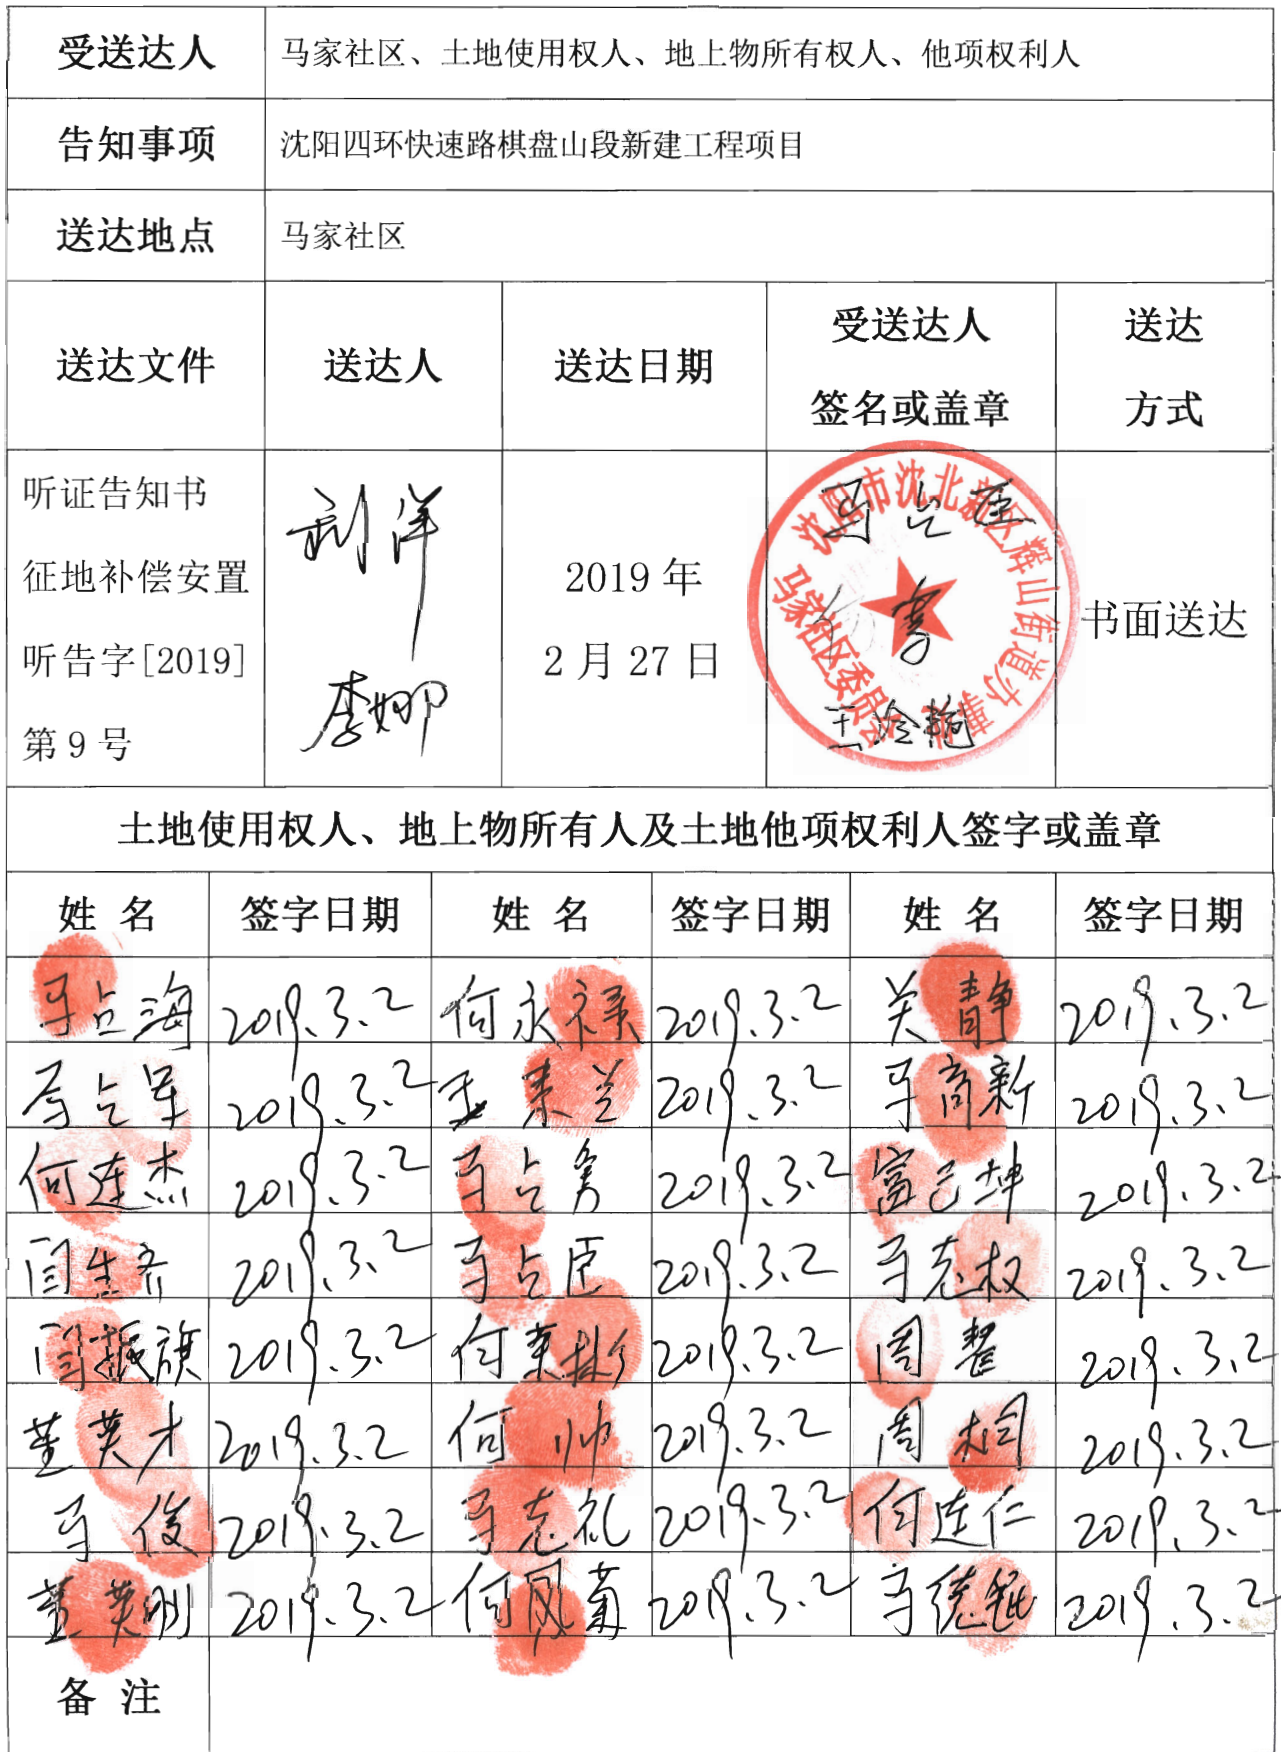 受送达人 马家社区、土地使用权人、地上物所有权人、他项权利人
告知事项 沈阳四环快速路棋盘山段新建工程项目
送达地点 马家社区
送达文件 送达人 送达日期 受送达人 签名或盖章 送达 方式
听证告知书
征地补偿安置
听告字[2019]
第9号
刘洋
李娜
2019年
2月27日
沈阳市沈北新区辉山街道办事处
马家社区委员会
书面送达
土地使用权人、地上物所有人及土地他项权利人签字或盖章
姓名 签字日期 姓名 签字日期 姓名 签字日期
马占海 2019.3.2 何永禄 2019.3.2 关静 2019.3.2
马占军 2019.3.2 2019.3.2 马商新 2019.3.2
何连杰 2019.3.2 马占勇 2019.3.2 富己坤 2019.3.2
闫生齐 2019.3.2 马占臣 2019.3.2 马克权 2019.3.2
闫振旗 2019.3.2 何 2019.3.2 周整 2019.3.2
董英才 2019.3.2 何帅 2019.3.2 周桐 2019.3.2
马俊 2019.3.2 马志礼 2019.3.2 何连仁 2019.3.2
董英刚 2019.3.2 何凤菊 2019.3.2 2019.3.2
备注